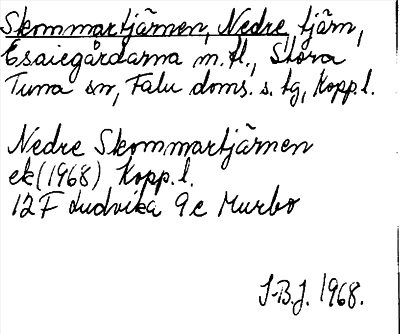 Skommartjärnen, Nedre tjärn,
Esaiegårdarna m.fl., Stora
Tuna sn, Falu doms. s. tg, Kopp.l.
Nedre Skommartjärnen
ek (1968) Kopp.l.
12 F Ludvika 9 c Murbo
J-B.J. 1968.